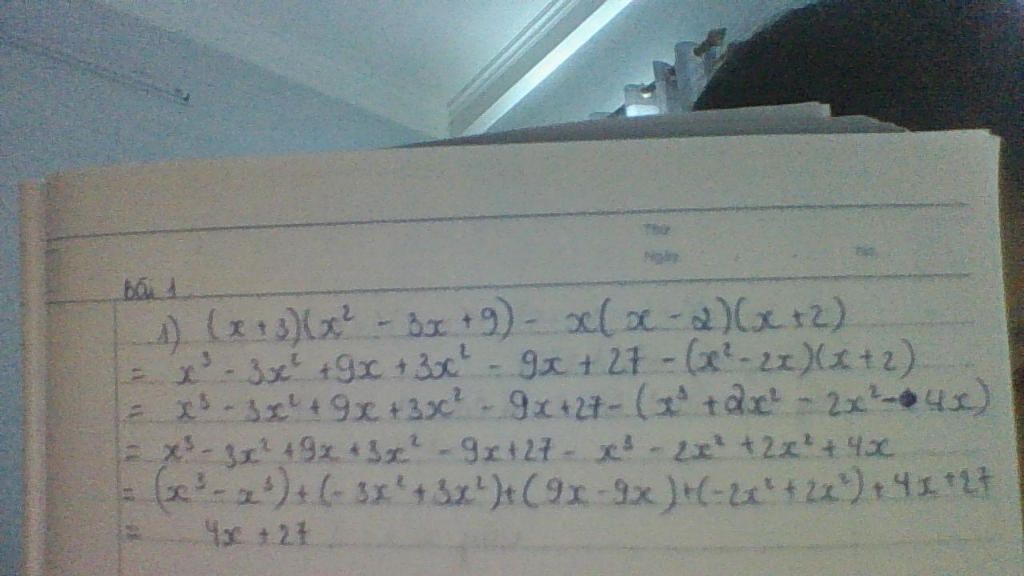 Thứ
Ngày
No.
Bài 1
1) (x+3)(x² - 3x+9) - x(x-2)(x+2)
= x³ - 3x² +9x+3x² - 9x+27 - (x²-2x)(x+2)
= x³ -3x²+9x+3x² - 9x+27-(x³ +2x² - 2x²- 4x)
= x³ - 3x²+9x+3x² - 9x+27- x³ - 2x² +2x² + 4x
= (x³ - x³)+(-3x²+3x²)+(9x-9x)+(-2x²+2x²)+4x+27
= 4x +27